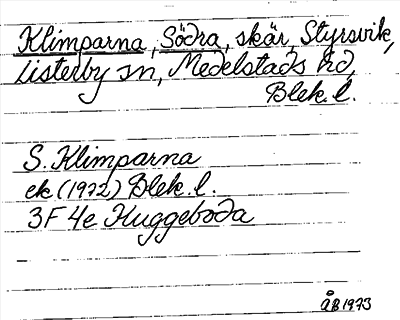 Klimparna, Södra, skär, Styrsvik,
Listerby sn, Medelstads hd,
Blek. l.
S. Klimparna
ek (1972) Blek. l.
3F 4e Kuggeboda
ÅB 1973